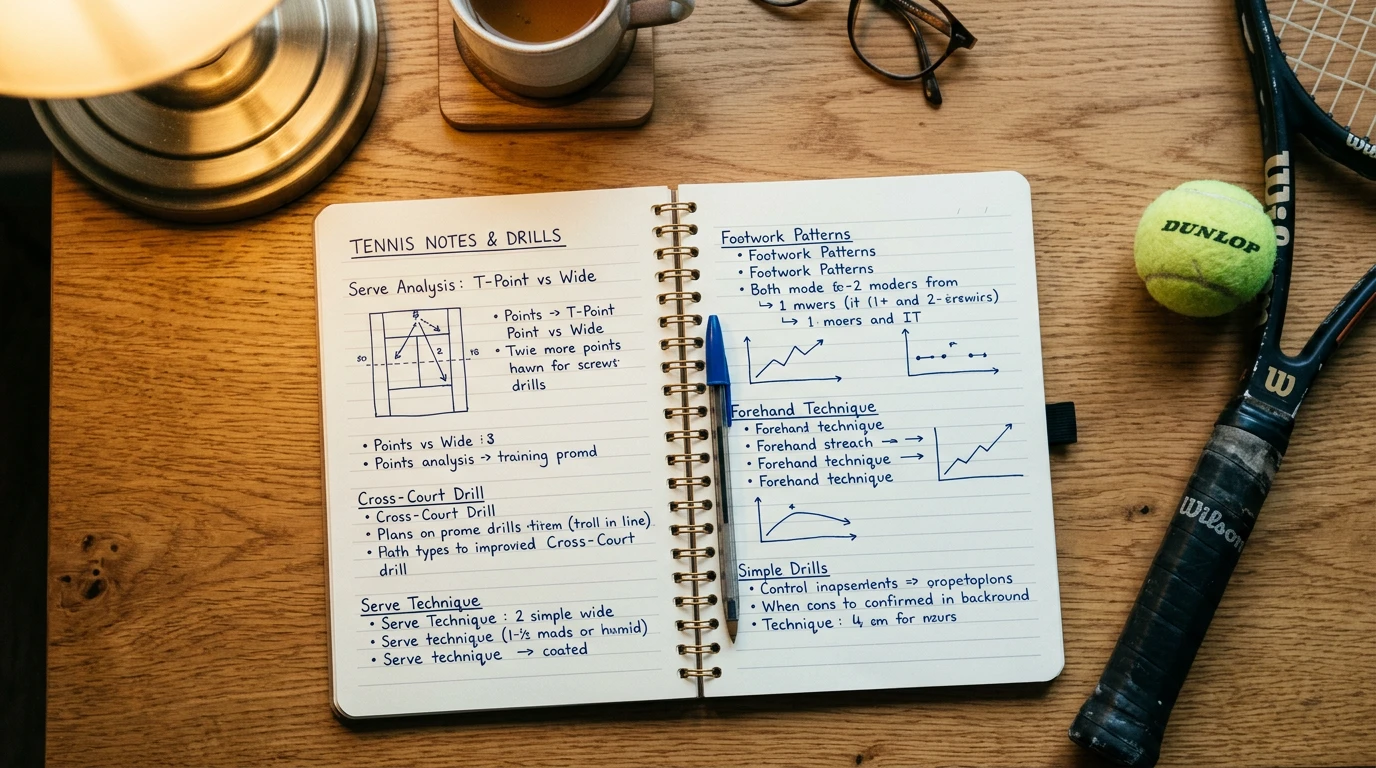 TENNIS NOTES & DRILLS
Serve Analysis: T-Point vs Wide
• Points → T-Point
Point vs Wide
• Twie more points
hawn for screws
drills
2
• Points vs Wide : 3
• Points analysis → training promd
Cross-Court Drill
• Cross-Court Drill
• Plans on prome drills (troll in line)
• Path types to improvied Cross-Court
drill
Serve Technique
• Serve Technique : 2 simple wide
• Serve technique mads or humid)
• Serve technique → coated
Footwork Patterns
• Footwork Patterns
• Footwork Patterns
• Both mode moders from
↳ 1 mwers (it and
↳ 1 moers and IT
Forehand Technique
• Forehand technique
• Forehand streach → →
• Forehand technique →
• Forehand technique
Simple Drills
• Control inapsements ⇒ qropetoplons
• When cons to confirmed in backround
• Technique : 4 cm for nzurs
DUNLOP
W
Wilson